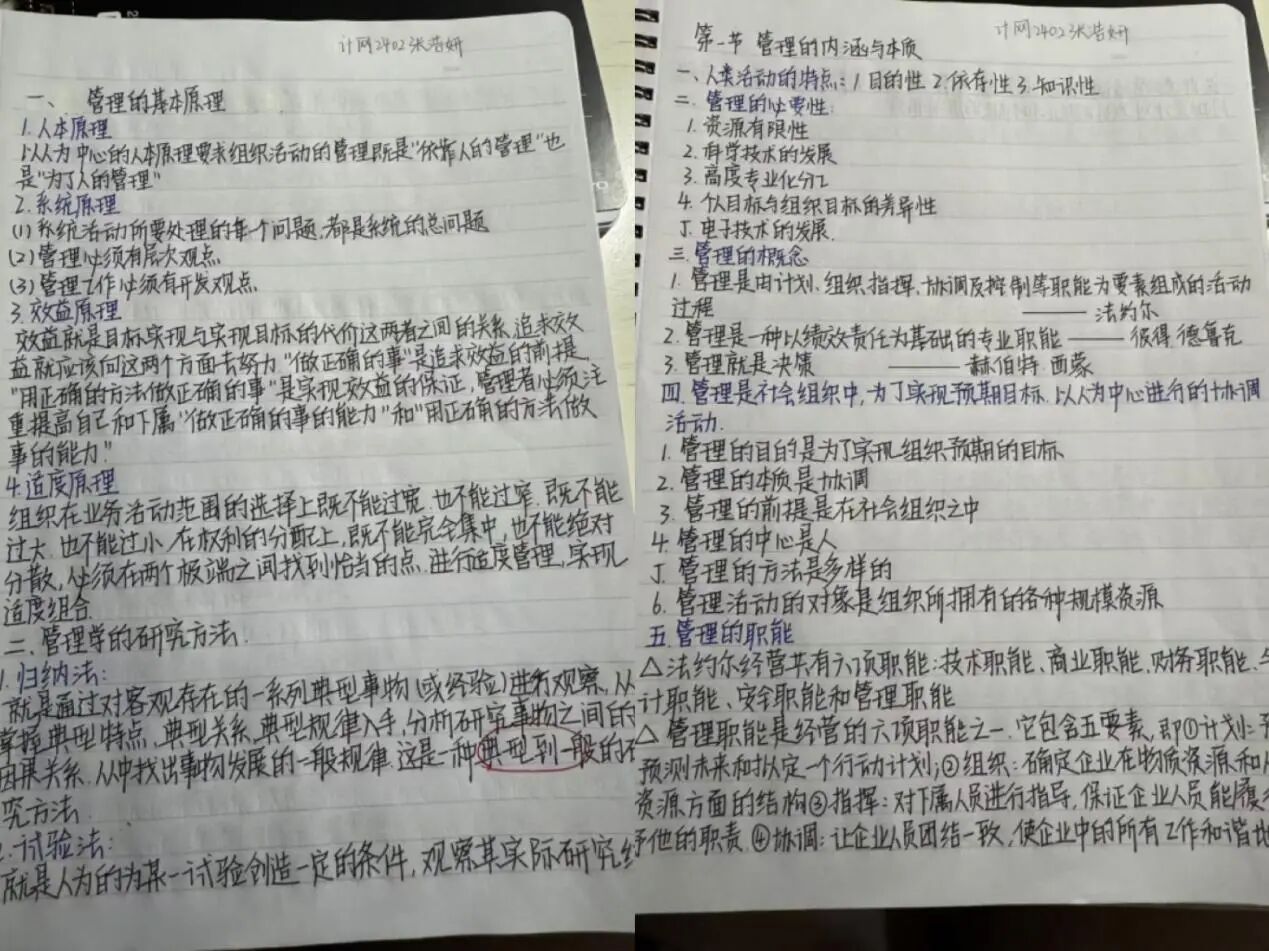 计网2402张浩妍
一、管理的基本原理
1.人本原理
以人为中心的人本原理要求组织活动的管理既是"依靠人的管理"也
是"为了人的管理"
2.系统原理
(1)系统活动所要处理的每个问题,都是系统的总问题
(2)管理必须有层次观点
(3)管理工作必须有开发观点
3.效益原理
效益就是目标实现与实现目标的代价这两者之间的关系,追求效
益就应该向这两个方面去努力"做正确的事"是追求效益的前提,
"用正确的方法做正确的事"是实现效益的保证,管理者必须注
重提高自己和下属"做正确的事的能力"和"用正确的方法做
事的能力"
4.适度原理
组织在业务活动范围的选择上既不能过宽.也不能过窄.既不能
过大.也不能过小.在权利的分配上,既不能完全集中,也不能绝对
分散,必须在两个极端之间找到恰当的点.进行适度管理,实现
适度组合
二.管理学的研究方法.
1.归纳法:
就是通过对客观存在的一系列典型事物(或经验)进行观察,从
掌握典型特点.典型关系.典型规律入手,分析研究事物之间的
因果关系.从中找出事物发展的一般规律.这是一种典型到一般的研
究方法.
2.试验法:
就是人为的为某一试验创造一定的条件,观察其实际研究结
计网2402张浩妍
第一节 管理的内涵与本质
一、人类活动的特点:1.目的性 2.依存性 3.知识性
二.管理的必要性:
1.资源有限性
2.科学技术的发展
3.高度专业化分工
4.个人目标与组织目标的差异性
5.电子技术的发展.
三.管理的概念
1.管理是由计划、组织、指挥、协调及控制等职能为要素组成的活动
过程 ——— 法约尔
2.管理是一种以绩效责任为基础的专业职能 ——— 彼得.德鲁克
3.管理就是决策 ——— 赫伯特.西蒙
四.管理是社会组织中,为了实现预期目标.以人为中心进行的协调
活动.
1.管理的目的是为了实现组织预期的目标
2.管理的本质是协调
3.管理的前提是在社会组织之中
4.管理的中心是人
5.管理的方法是多样的
6.管理活动的对象是组织所拥有的各种规模资源
五.管理的职能
△法约尔经营共有六项职能:技术职能、商业职能.财务职能.会
计职能、安全职能和管理职能
△管理职能是经营的六项职能之一.它包含五要素,即①计划:
预测未来和拟定一个行动计划;②组织:确定企业在物质资源和人
资源方面的结构③指挥:对下属人员进行指导,保证企业人员能履行
予他的职责.④协调:让企业人员团结一致,使企业中的所有工作和谐地